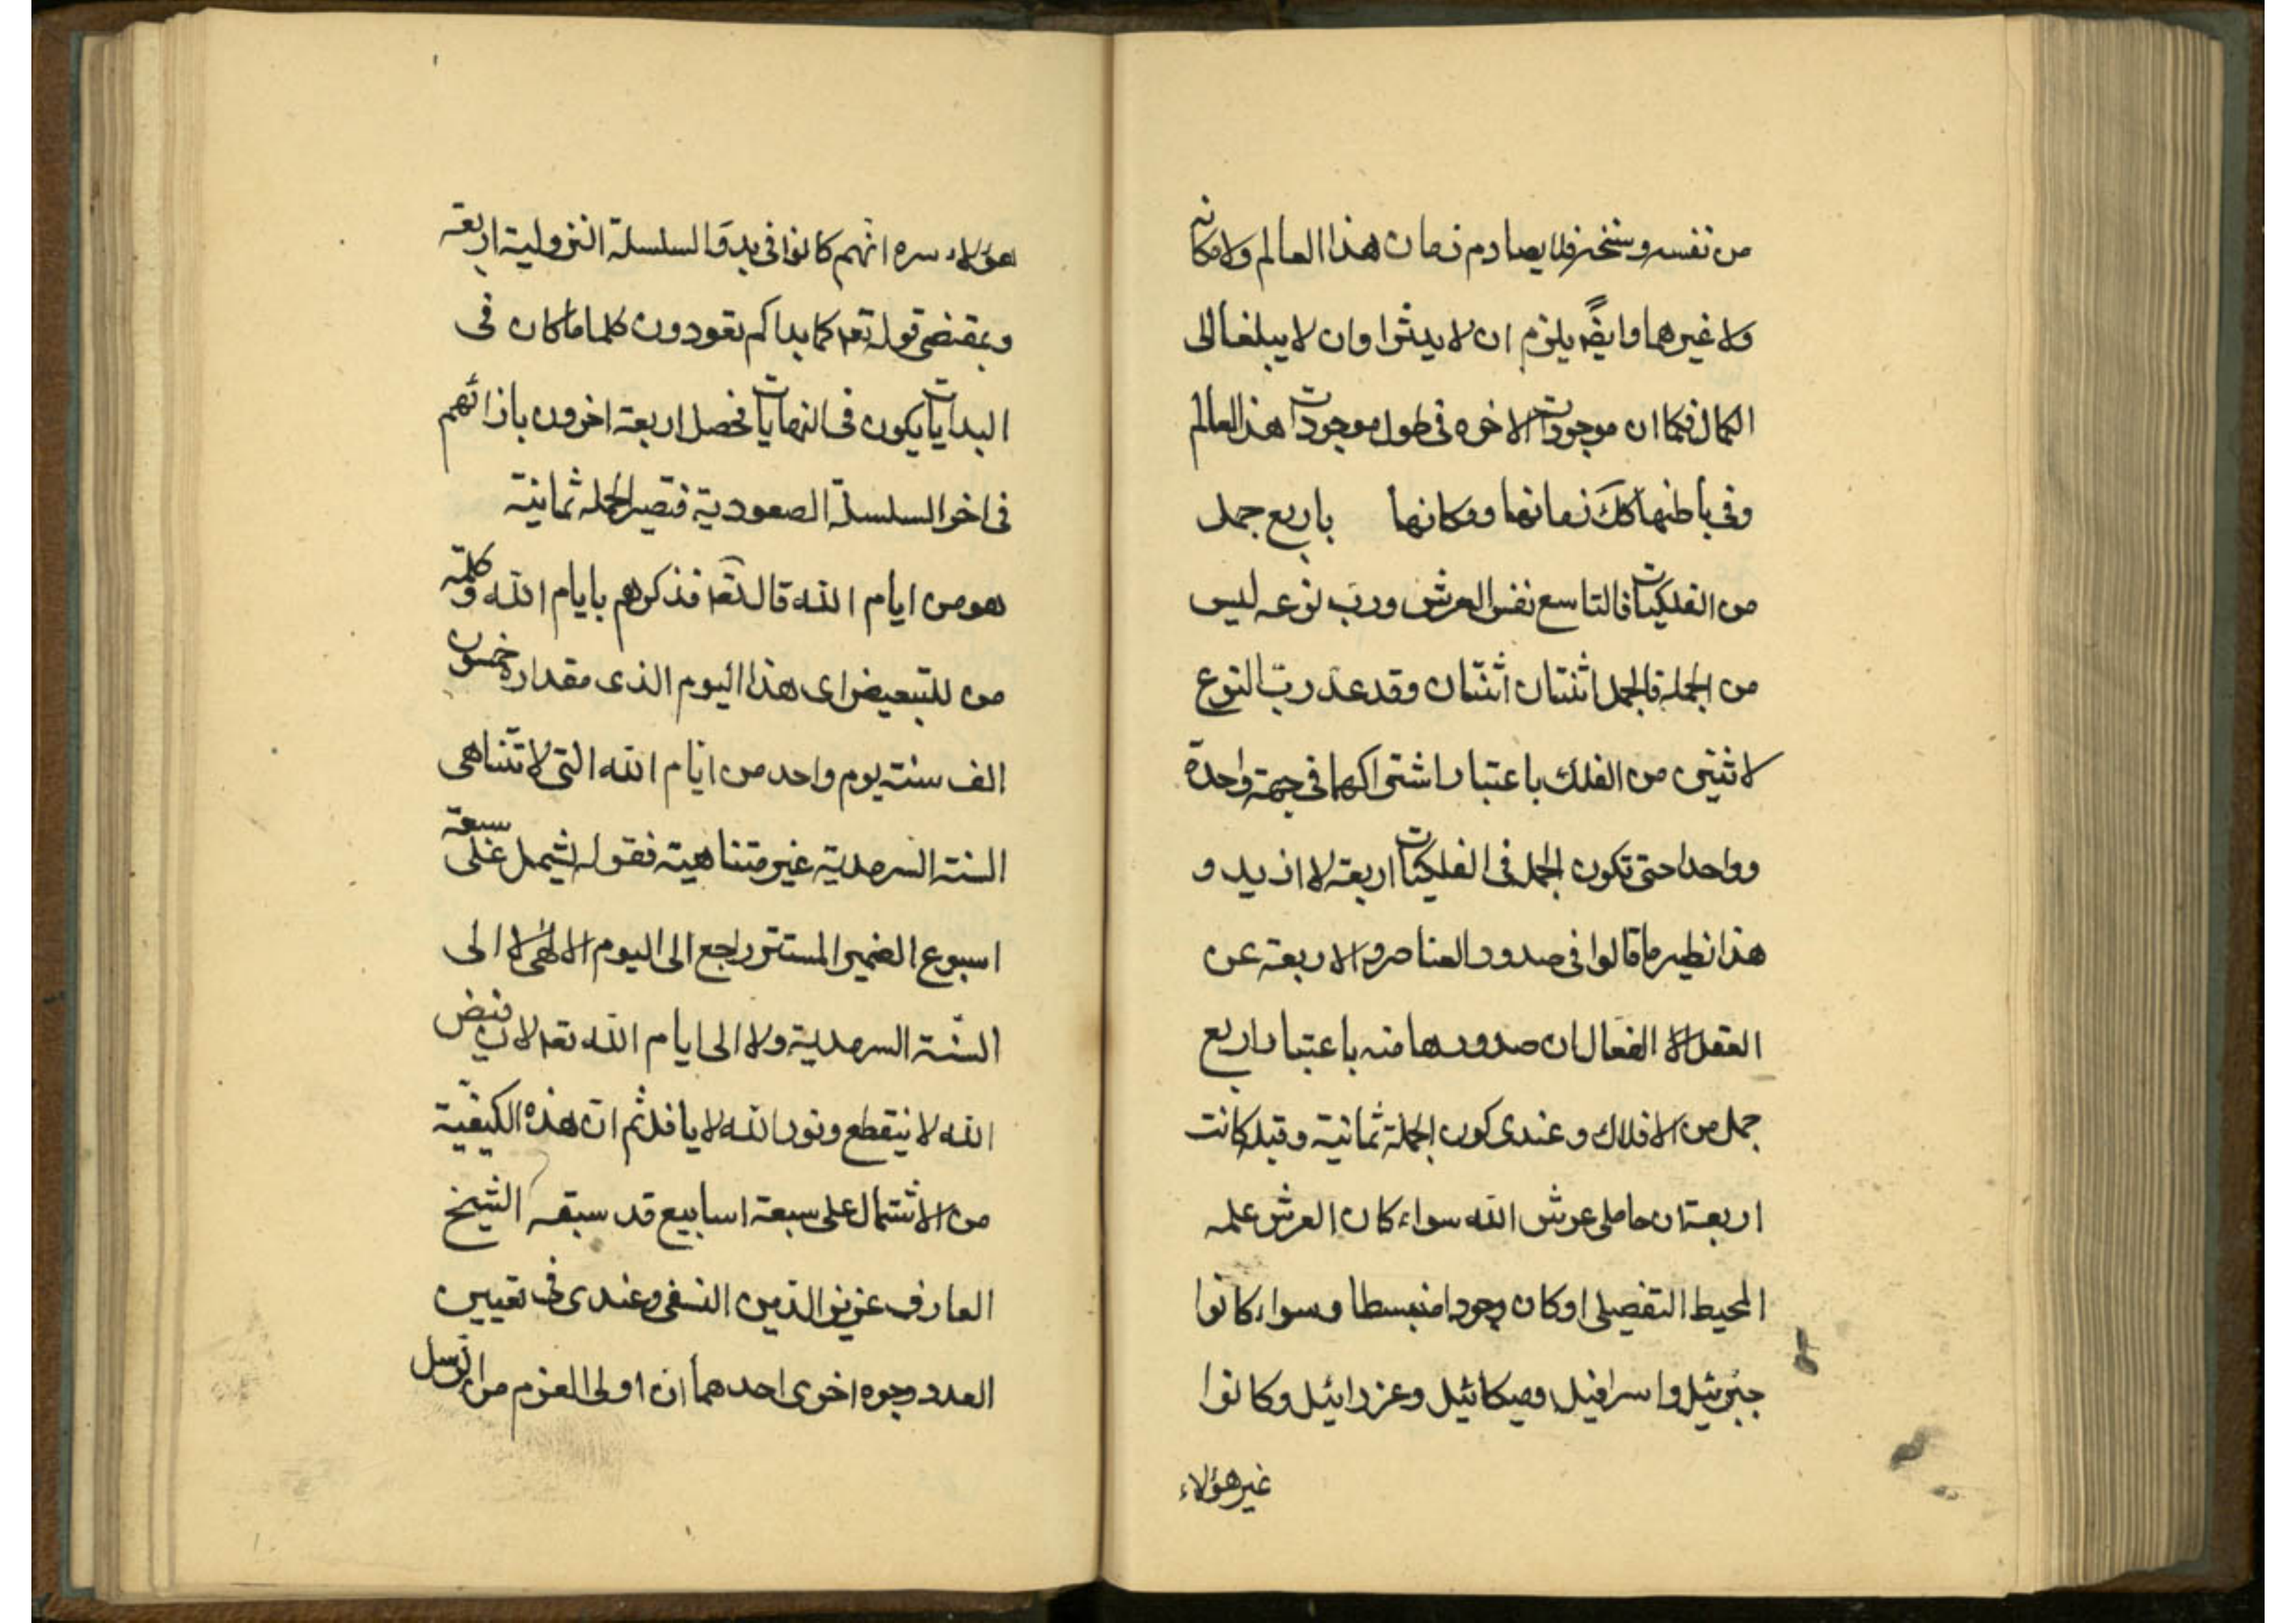 من نفسه وسنخه فلا يصادم زمان هذا العالم ولا مكانه
ولا غيرهما وايضً يلزم ان لا يدثرا وان لا يبلغا الى
الكمال فكما ان موجودات الاخره فى طول موجودات هذا العالم
وفى باطنها كك زمانها ومكانها باربع جمل
من الفلكيات فالتاسع نفس العرش ورب نوعه ليس
من الجملة فالجمل اثنتان اثنتان وقد عد ربّ النوع
لاثنين من الفلك باعتبار اشتراكهما فى جهة واحدة
وواحدا حتى تكون الجمل فى الفلكيات اربعة لا ازيد و
هذا نظير ما قالوا فى صدور العناصر الاربعة عن
العقل الفعال ان صدورها منه باعتبار اربع
جمل من الافلاك وعندى كون الجملة ثمانية وقبل كانت
اربعة ان حاملى عرش الله سواء كان العرش علمه
المحيط التفصيلى او كان وجودا منبسطا وسواء كانوا
جبرئيل واسرافيل وميكائيل وعزرائيل وكانوا
غير هؤلاء
هؤلاء سره انهم كانوا فى بدو السلسلة النزولية اربعة
وبمقتضى قوله تعه كما بداكم تعودون كلما كان فى
البدايات يكون فى النهايات فحصل اربعة اخرون بازائهم
فى اخر السلسلة الصعودية فتصير الجملة ثمانية
هو من ايام الله قال تعه فذكرهم بايام الله وكلمة
من للتبعيض اى هذا اليوم الذى مقداره خمسون
الف سنة يوم واحد من ايام الله التى لا تتناهى
السنة السرمدية غير متناهية فقوله يشمل على سبعة
اسبوع الضمير المستتر راجع الى اليوم الالهى لا الى
السنة السرمدية ولا الى ايام الله تعه لان فيض
الله لا ينقطع ونور الله لا يافل ثم ان هذه الكيفية
من الاشتمال على سبعة اسابيع قد سبقه الشيخ
العارف عزيز الدين النسفى وعندى فى تعيين
العدد وجوه اخرى احدهما ان اولى العزم من الرسل